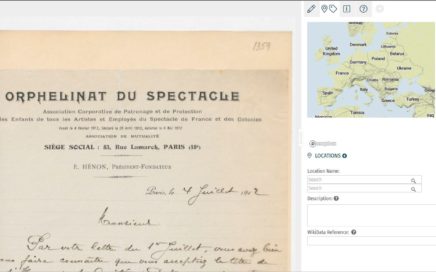 1359
ORPHELINAT DU SPECTACLE
Association Corporative de Patronage et de Protection
des Enfants de tous les Artistes et Employés du Spectacle de France et des Colonies
Fondé le 4 février 1912, Déclaré le 25 Avril 1912, Autorisé le 4 Mai 1912
ASSOCIATION DE MUTUALITÉ
SIÈGE SOCIAL : 83, Rue Lamarck, PARIS (18e)
E. HÉNON, PRÉSIDENT-FONDATEUR
Paris le 4 Juillet 1912
Monsieur
Par votre lettre du 1er Juillet, vous avez bien
faire connaître que vous acceptez le titre
United
Kingdom
Denmark
Germany
Belarus
Ukraine
France
Spain
LOCATIONS
Location Name:
Search
Search
Description:
WikiData Reference: